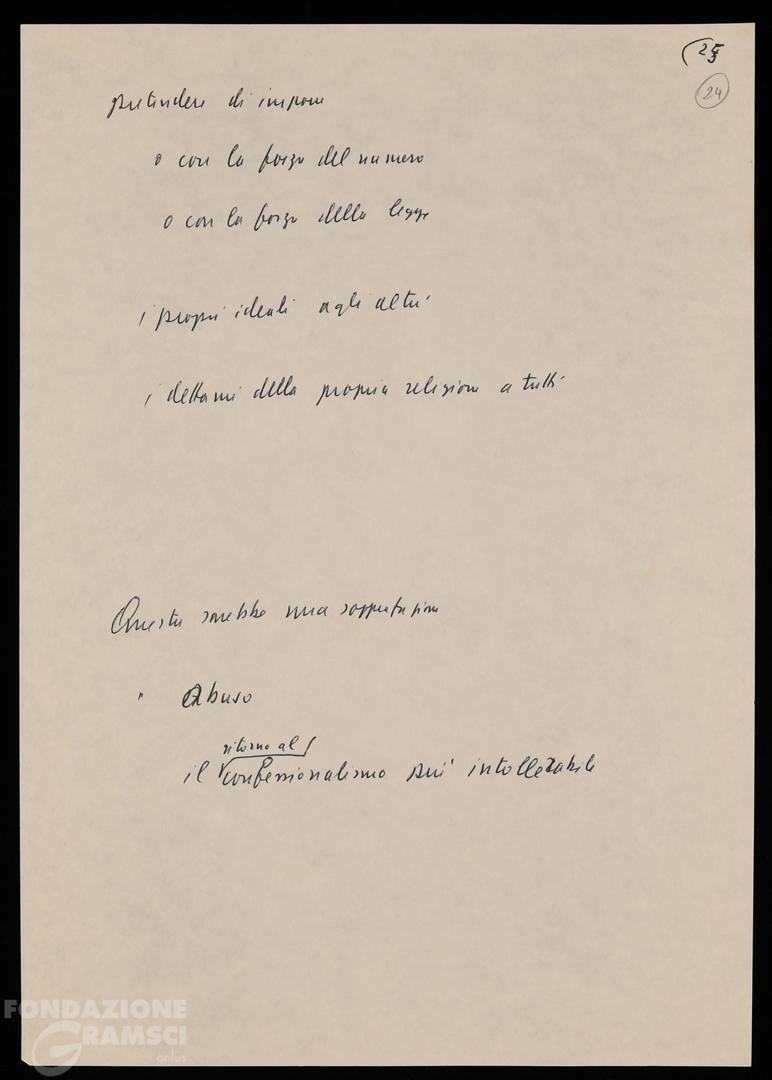 24
pretendere di imporre
o con la forza del numero
o con la forza della legge
i propri ideali agli altri
i dettami della propria religione a tutti
Questa sarebbe una sopraffazione
" abuso
ritorno al
il confessionalismo più intollerabile
FONDAZIONE
GRAMSCI
onlus